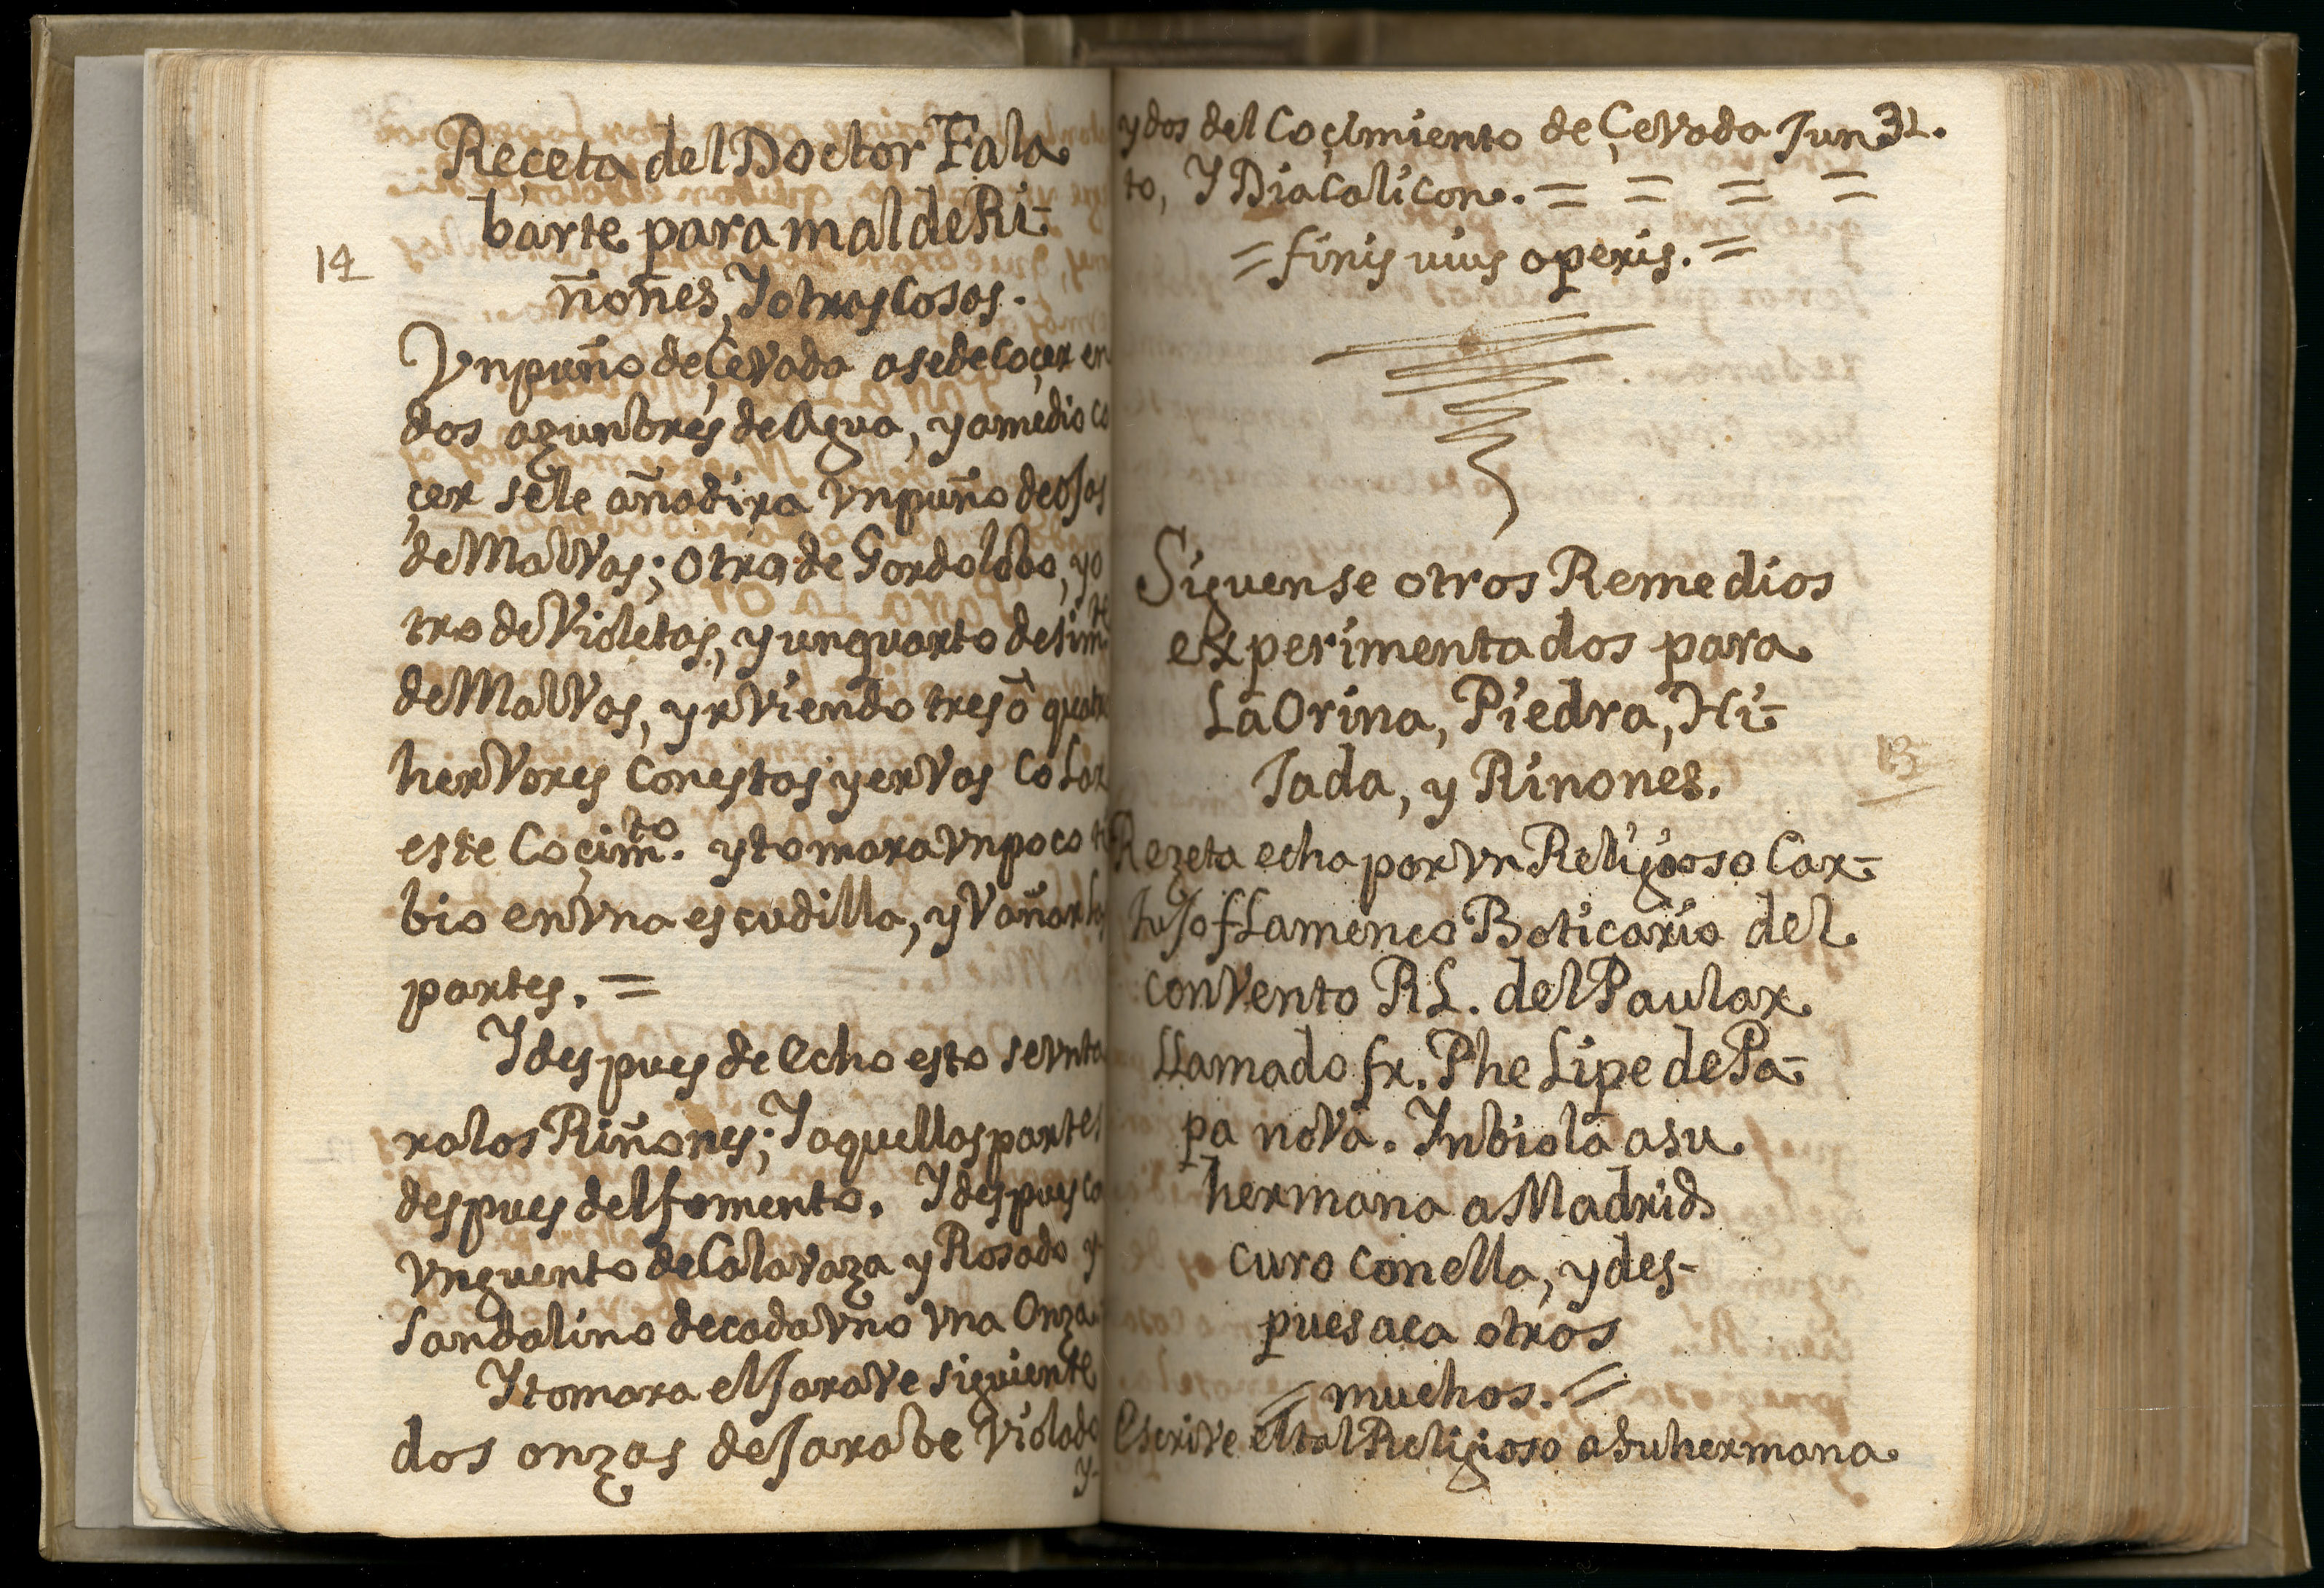 Receta del Doctor Fala
barte para mal de Ri-
ñones, Y otras Cosas.
14
Vn puño de Çevada a se de Coçer en
dos azunbres de Agua, y a medio co
çer se le añadira Vn puño de oJas
de MalVas; otro de Gordolobo, y o
tro de Violetas, y un quarto de sim.te
de MalVas, y rViendo tres ò quatro
herVores Con estas yerVas Colar
este Coçim.to y tomara Vn poco ti
bio en Vna escudilla, y Vañar las
partes. =
Y despues de echo esto se Vnta
ra los Riñones; Y aquellas partes
despues del fomento. Y despues co
Vnguento de CalaVaza y Rosado y
Sandalino de cada Vno Vna Onza.
Y tomara el JaraVe siguiente
dos onzas de Jarabe Violado
y-
y dos del Coçimiento de ÇeVada Jun 31.
to, Y Diacalicon. = = = =
= finis uius operis. =
Siguense otros Remedios
experimentados para
La Orina, Piedra, Hi-
Jada, y Rinones.
13
Rezeta echa por Vn Religioso Car-
tuJo fLamenco Boticario del
conVento RL. del Paular
LLamado fr. PheLipe de Pa-
pa noVa. Inbiola a su
hermana a Madrid
curo con ella, y des-
pues aca otros
= muchos. =
EscriVe el tal Religioso a Su hermana